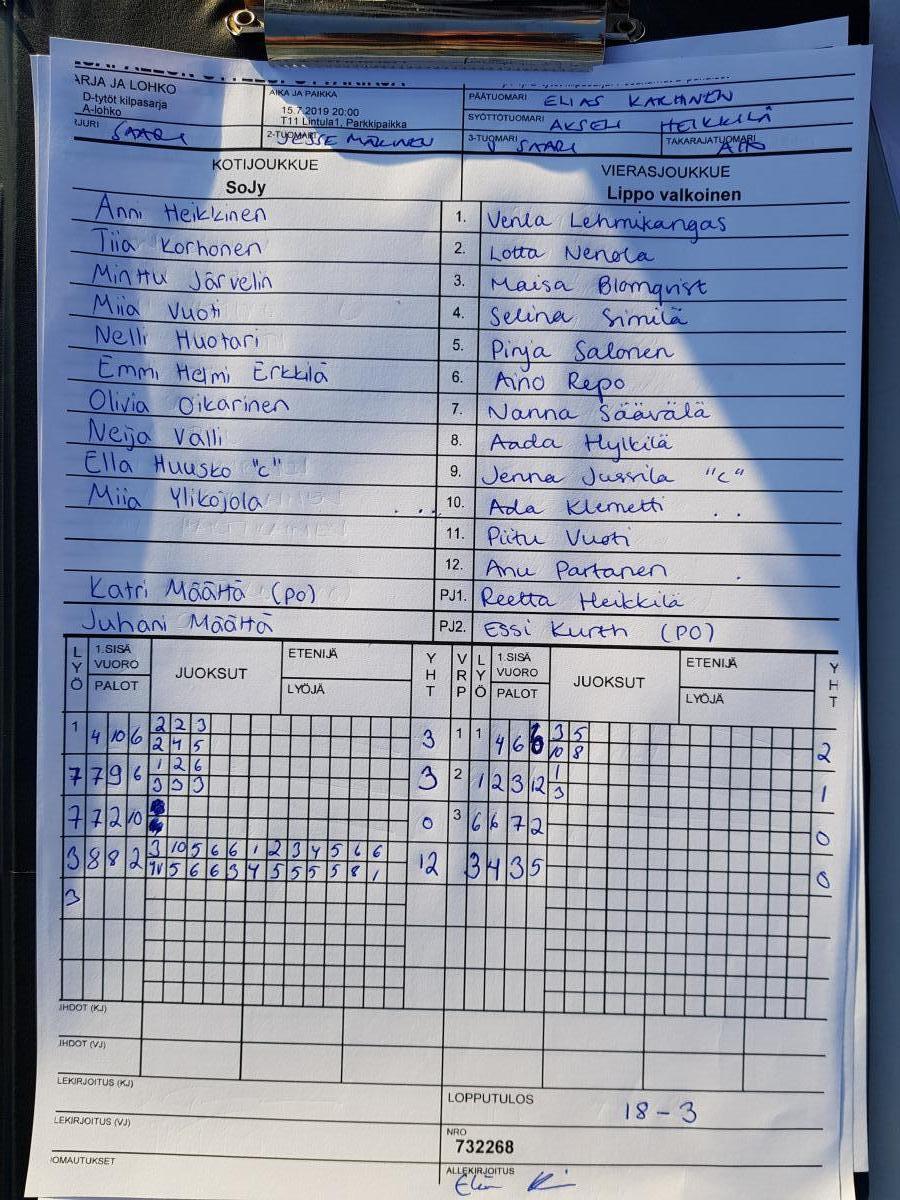 ARJA JA LOHKO
D-tytöt kilpasarja
A-lohko
AIKA JA PAIKKA
15.7.2019 20:00
T11 Lintula1, Parkkipaikka
PÄÄTUOMARI ELIAS KARHINEN
SYÖTTÖTUOMARI AKSELI HEIKKILÄ
JURI SAARI
2-TUOMARI JESSE MÄKINEN
3-TUOMARI SAARI
TAKARAJATUOMARI
KOTIJOUKKUE
SoJy
VIERASJOUKKUE
Lippo valkoinen
Anni Heikkinen 1. Venla Lehmikangas
Tiia Korhonen 2. Lotta Nenola
Minttu Järvelin 3. Maisa Blomqvist
Miia Vuoti 4. Selina Similä
Nelli Huotari 5. Pinja Salonen
Emmi Helmi Erkkilä 6. Aino Repo
Olivia Oikarinen 7. Nanna Säävälä
Neija Välli 8. Aada Hylkilä
Ella Huusko "c" 9. Jenna Jussila "c"
Miia Ylikojola 10. Ada Klemetti
11. Piitu Vuoti
12. Anu Partanen
Katri Määttä (PO) PJ1. Reetta Heikkilä
Juhani Määttä PJ2. Essi Kurth (PO)
LYÖ 1.SISÄ VUORO PALOT JUOKSUT ETENIJÄ LYÖJÄ YHT VRP LYÖ 1.SISÄ VUORO PALOT JUOKSUT ETENIJÄ LYÖJÄ YHT
1 4 10 6 2 2 3 3 1 1 4 6 3 5 2
2 4 5 10 8
7 7 9 6 1 2 6 3 2 1 2 3 12 1 1
3 3 3 3
7 7 2 10 0 3 6 6 7 2 0
3 8 8 2 3 10 5 6 6 1 2 3 4 5 6 6 12 3 4 3 5 0
5 6 6 3 4 5 5 5 5 8 1
3
JHDOT (KJ)
JHDOT (VJ)
LEKIRJOITUS (KJ)
LOPPUTULOS 18 - 3
LEKIRJOITUS (VJ)
NRO
732268
OMAUTUKSET
ALLEKIRJOITUS